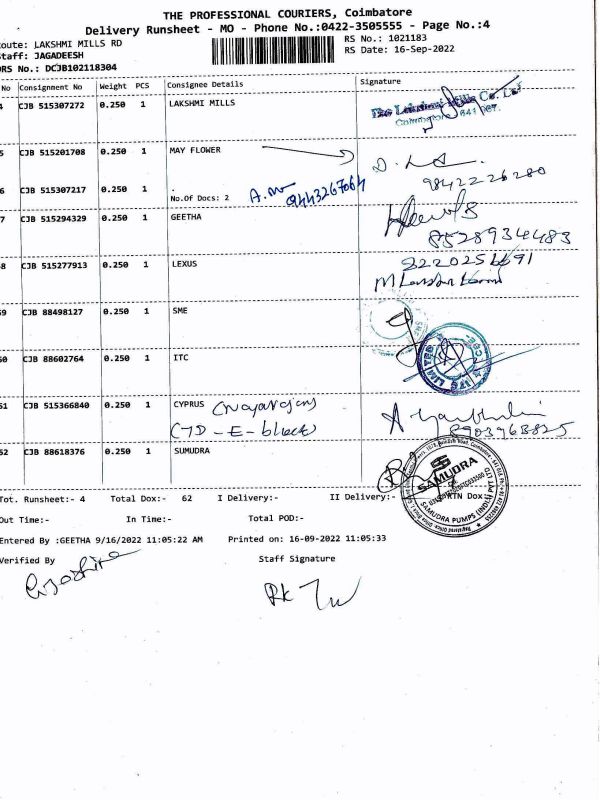 THE PROFESSIONAL COURIERS, Coimbatore
Delivery Runsheet - MO - Phone No.:0422-3505555 - Page No.:4
oute: LAKSHMI MILLS RD
RS No.: 1021183
taff: JAGADEESH
RS Date: 16-Sep-2022
DRS No.: DCJB102118304
No Consignment No Weight PCS Consignee Details Signature
4 CJB 515307272 0.250 1 LAKSHMI MILLS
The Lakshmi Mills Co. Ltd
Coimbatore 641
5 CJB 515201708 0.250 1 MAY FLOWER
9842226280
6 CJB 515307217 0.250 1 .
No.Of Docs: 2 9443267064
7 CJB 515294329 0.250 1 GEETHA
8528934483
8 CJB 515277913 0.250 1 LEXUS
59 CJB 88498127 0.250 1 SME
60 CJB 88602764 0.250 1 ITC
ITC LIMITED
61 CJB 515366840 0.250 1 CYPRUS
C7D-E-block 8903963825
62 CJB 88618376 0.250 1 SUMUDRA
SAMUDRA
SAMUDRA PUMPS (INDIA) P LTD
Tot. Runsheet:- 4 Total Dox:- 62 I Delivery:- II Delivery:- RTN Dox
Out Time:- In Time:- Total POD:-
Entered By :GEETHA 9/16/2022 11:05:22 AM Printed on: 16-09-2022 11:05:33
Verified By Staff Signature